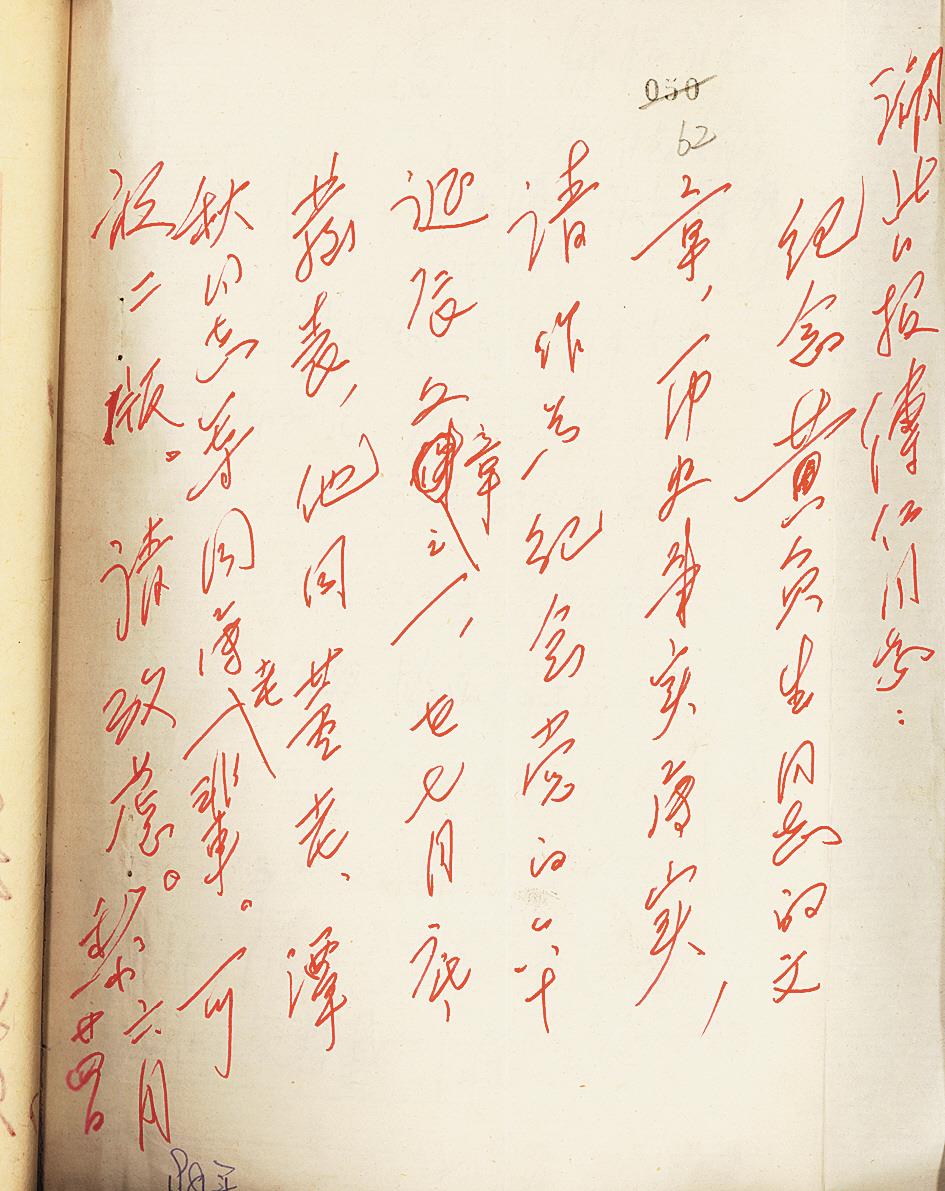 湖北日报 同志:
纪念黄负生同志的文
章, 史事实落实,
请作为纪念党的六十
诞辰文章之一,在七月底
发表,他同董老、潭
秋同志等同属老一辈。可
放二版。请攷虑。
六月
廿四日
050
62